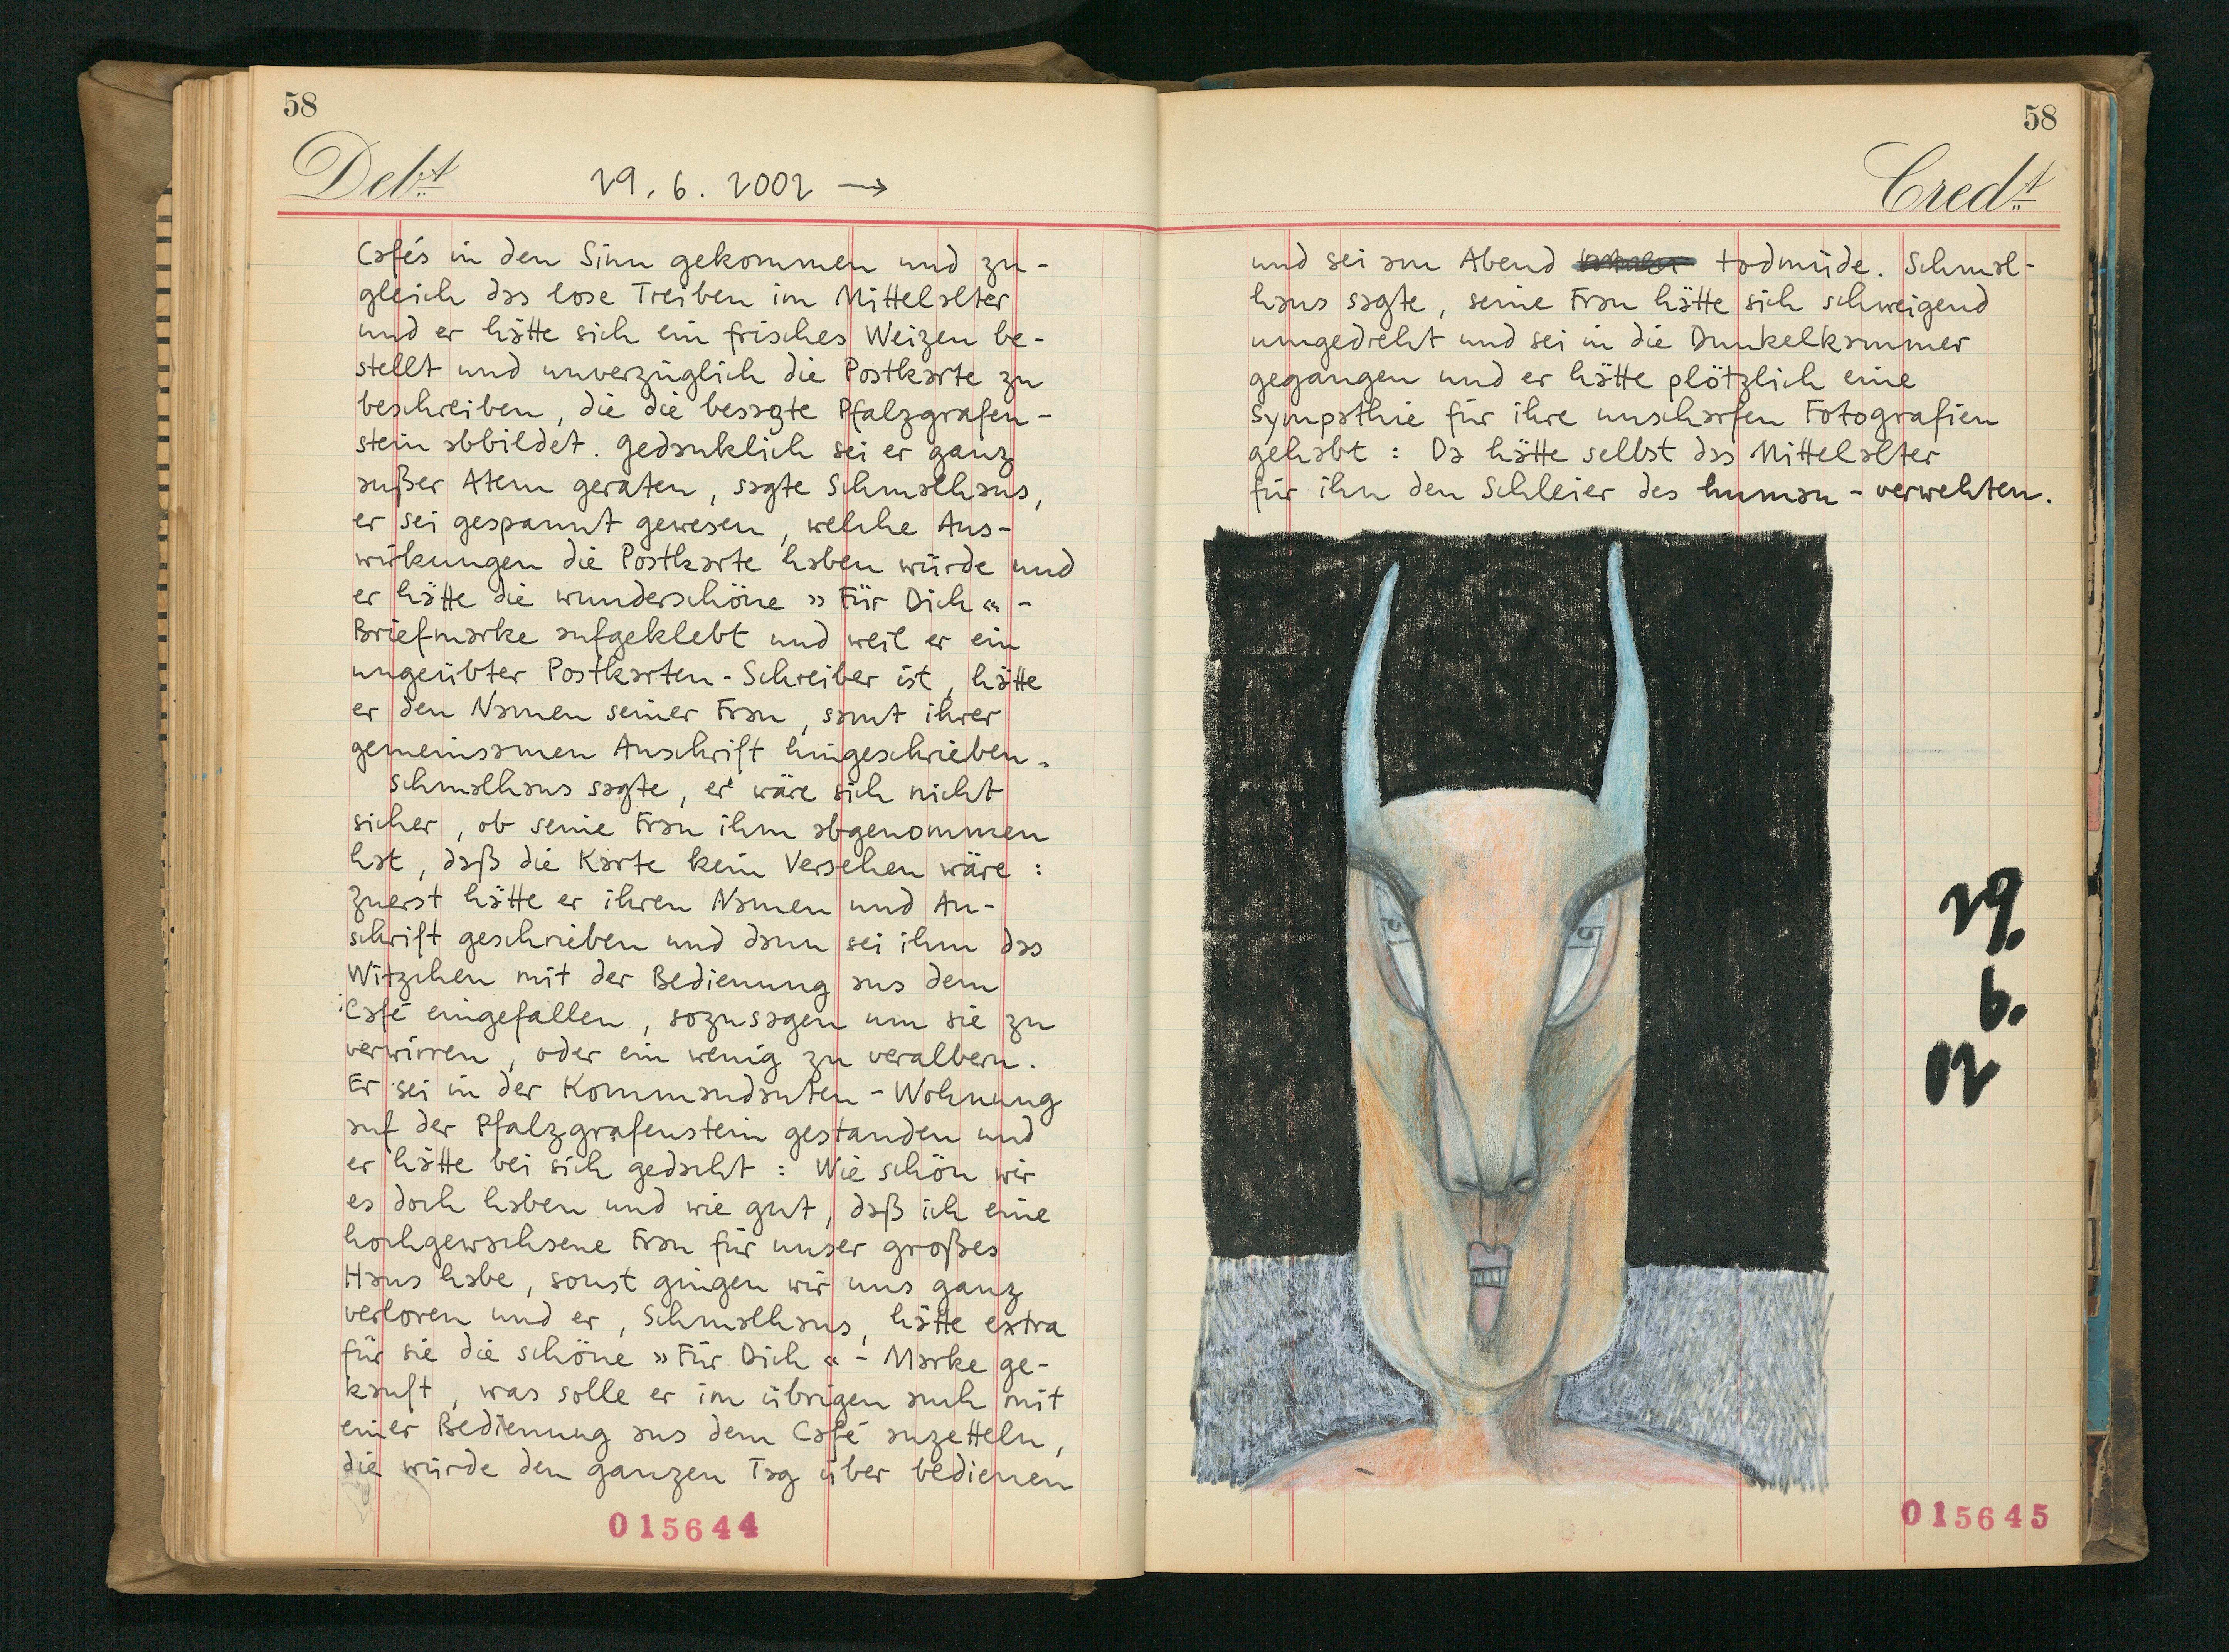 58
Debt
29. 6. 2002 →
Cafés in den Sinn gekommen und zu-
gleich das lose Treiben im Mittelalter
und er hätte sich ein frisches Weizen be-
stellt und unverzüglich die Postkarte zu
beschreiben, die die besagte Pfalzgrafen-
stein abbildet. Gedanklich sei er ganz
außer Atem geraten, sagte Schmalhans,
er sei gespannt gewesen, welche Aus-
wirkungen die Postkarte haben würde und
er hätte die wunderschöne »Für Dich«-
Briefmarke aufgeklebt und weil er ein
ungeübter Postkarten-Schreiber ist, hätte
er den Namen seiner Frau, samt ihrer
gemeinsamen Anschrift hingeschrieben.
Schmalhans sagte, er wäre sich nicht
sicher, ob seine Frau ihm abgenommen
hat, daß die Karte kein Versehen wäre:
Zuerst hätte er ihren Namen und An-
schrift geschrieben und dann sei ihm das
Witzchen mit der Bedienung aus dem
Café eingefallen, sozusagen um sie zu
verwirren, oder ein wenig zu veralbern.
Er sei in der Kommandanten-Wohnung
auf der Pfalzgrafenstein gestanden und
er hätte bei sich gedacht: Wie schön wir
es doch haben und wie gut, daß ich eine
hochgewachsene Frau für unser großes
Haus habe, sonst gingen wir uns ganz
verloren und er, Schmalhans, hätte extra
für sie die schöne »Für Dich«-Marke ge-
kauft, was solle er im übrigen auch mit
einer Bedienung aus dem Café anzetteln,
die würde den ganzen Tag über bedienen
015644
58
Credt
und sei am Abend todmüde. Schmal-
hans sagte, seine Frau hätte sich schweigend
umgedreht und sei in die Dunkelkammer
gegangen und er hätte plötzlich eine
Sympathie für ihre unscharfen Fotografien
gehabt: Da hätte selbst das Mittelalter
für ihn den Schleier des human-verwehten.
29.
6.
02
015645